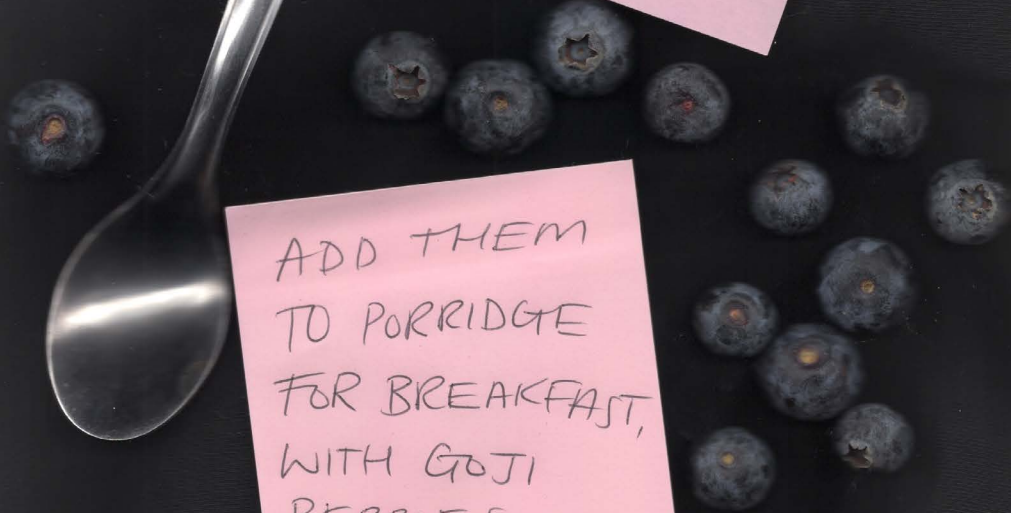 ADD THEM
TO PORRIDGE
FOR BREAKFAST,
WITH GOJI